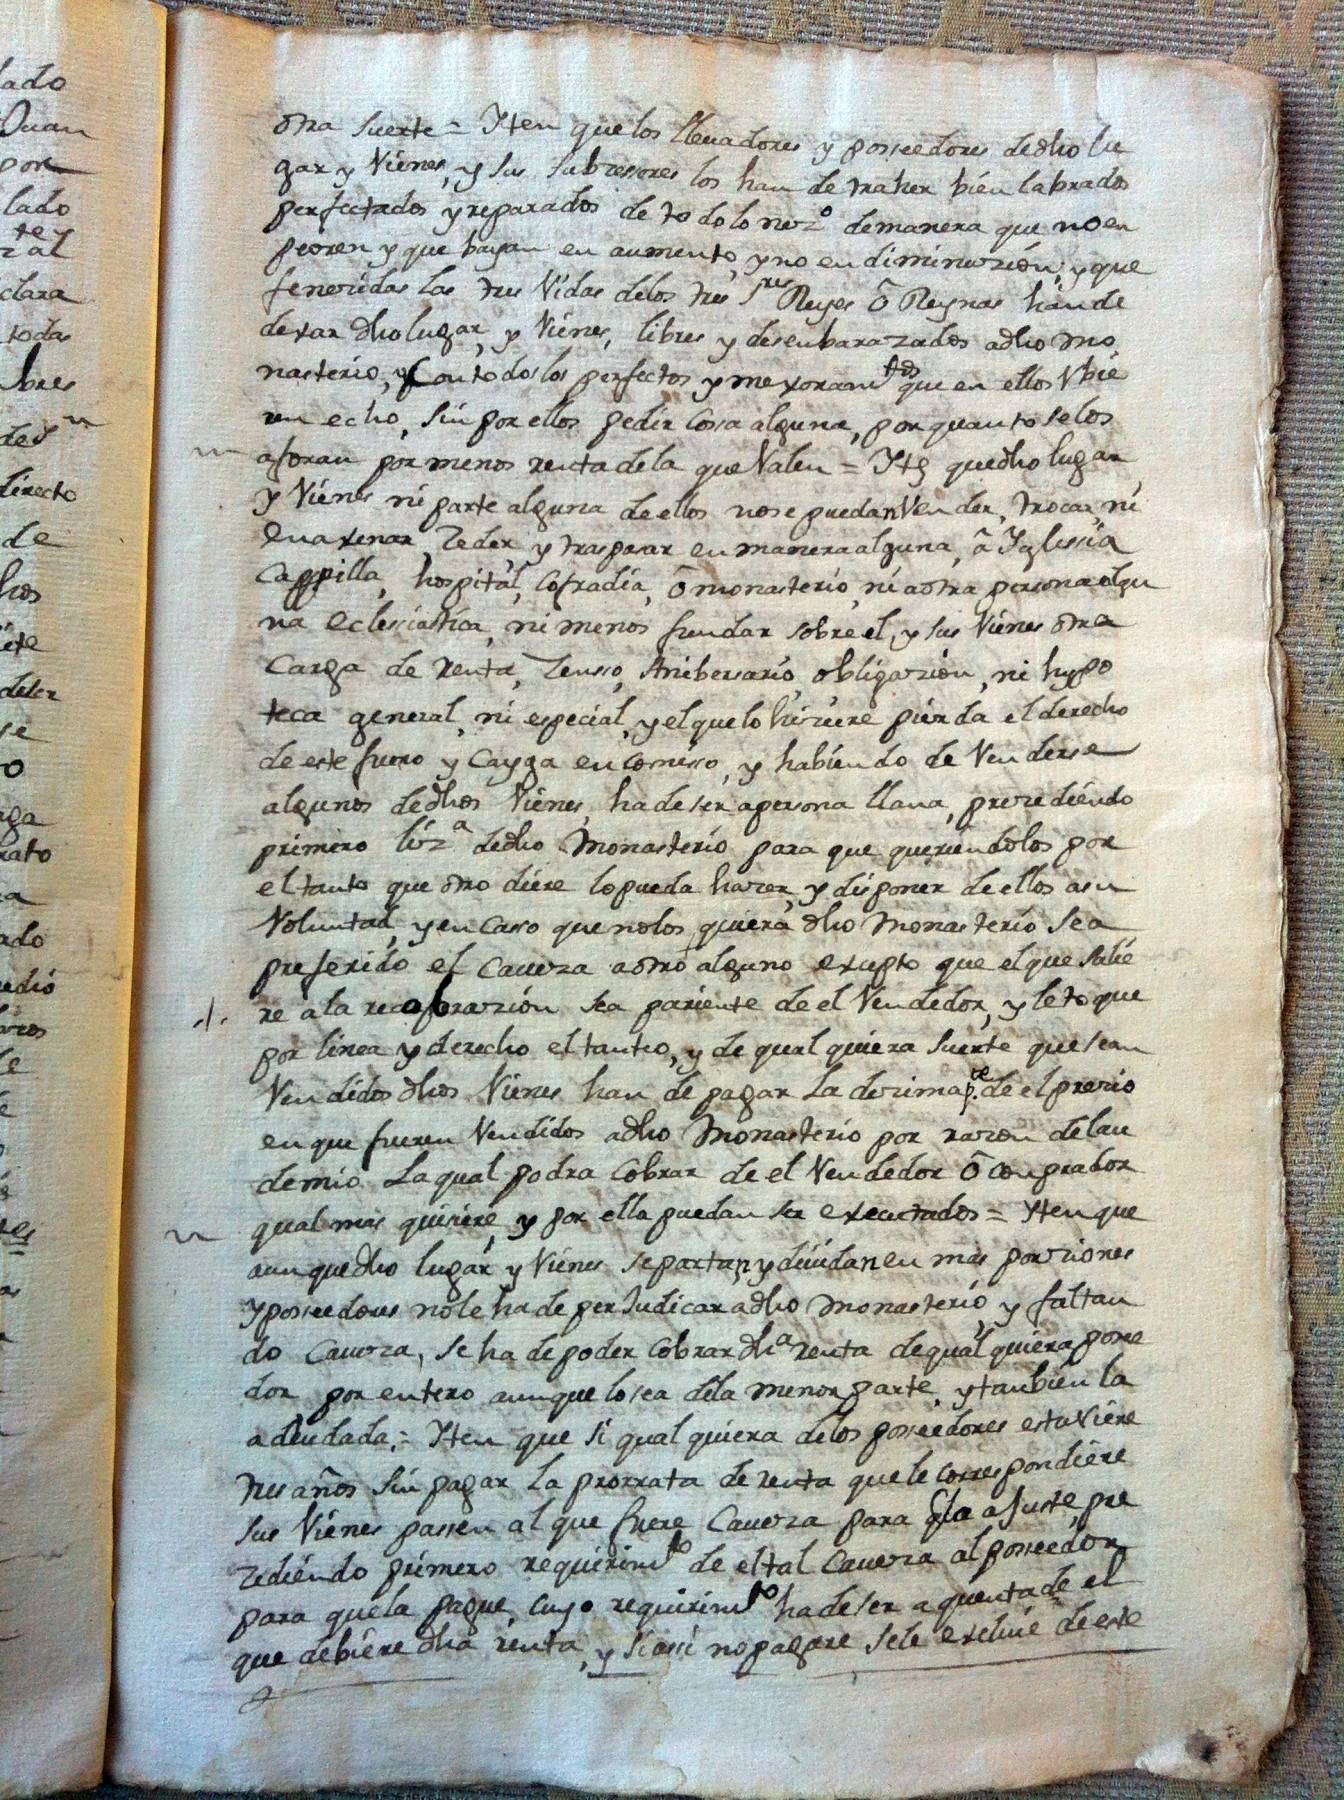 lado
Juan
por
lado
te
z al
clara
todas
bres
des
directo
de
hos
dicto
se
o
aga
rato
a
ado
edió
otra suerte = Yten que los llevadores y posseedores de dho lu
gar y Viénes, y sus subzessores los han de traher bién labrados
perfectados y reparados de todo lo nezº de manera que no en
peoren y que bayan en aumento, y no en diminuzión, y que
fenezidas las tres Vidas de los tres Sres Reyes ô Reynas hán de
dexar dho lugar, y Viénes, libres y desenbarazados a dho mo
nasterio, y Con todos los perfectos y mexoramtos que en ellos Vbié
ren echo, sin por ellos pedir Cossa alguna, por quanto se los
aforan por menos renta de la que Valen = Ytt que dho lugar
y Viénes ni parte alguna de ellos no se puedan Vender, trocar, ni
enaxenar, Zeder, y traspasar en manera alguna, â Yglessia
Cappilla, hospital, Cofradía, ô monasterio, ni a otra persona algu
na eclessiastica, ni menos fundar sobre el, y sus Viénes otra
Carga de renta, Zensso, Anibersario, obligazión, ni hypo
teca general, ni especial, y el que lo hiziere piérda el derecho
de este fuero y Cayga en Comisso, y habiéndo de Venderse
algunos de dhos Viénes, ha de ser a persona llana, prezediéndo
primero lizª de dho Monasterio para que queriéndolos por
el tanto que otro diére lo pueda hazer, y disponer de ellos a su
Voluntad, y en Casso que no los quiéra dho Monasterio sea
preferido el Caveza a otro alguno exzepto que el que salié
re a la reaforazión sea pariente de el Vendedor, y le toque
por linea y derecho el tanteo, y de qual quiéra suerte que sean
Vendidos dhos Viénes han de pagar la dezima pte de el prezio
en que fueren Vendidos a dho Monasterio por razon de lau
demio La qual podra Cobrar de el Vendedor ô Comprador
qual mas quisiére, y por ella puedan ser executados = Yten que
aunque dho lugar y Viénes se partan y dividan en mas porziones
y posseedores no le ha de perjudicar a dho Monasterio, y faltan
do Caveza, se ha de poder Cobrar dhª renta de qual quiéra posse
dor por entero aunque lo sea de la menor parte, y tanbién la
adeudada = Yten que si qual quiéra de los posseedores estuviére
tres años sin pagar la prorrata de renta que le correspondiére
sus Viénes passen al que fuere Caveza para qe la ajuste, pre
zediéndo primero requirimto de el tal Caveza al posseedor
para que la pague, cuyo requirimto ha de ser a quenta de el
que debiére dha renta, y si assi no pagare se le exclúie de este